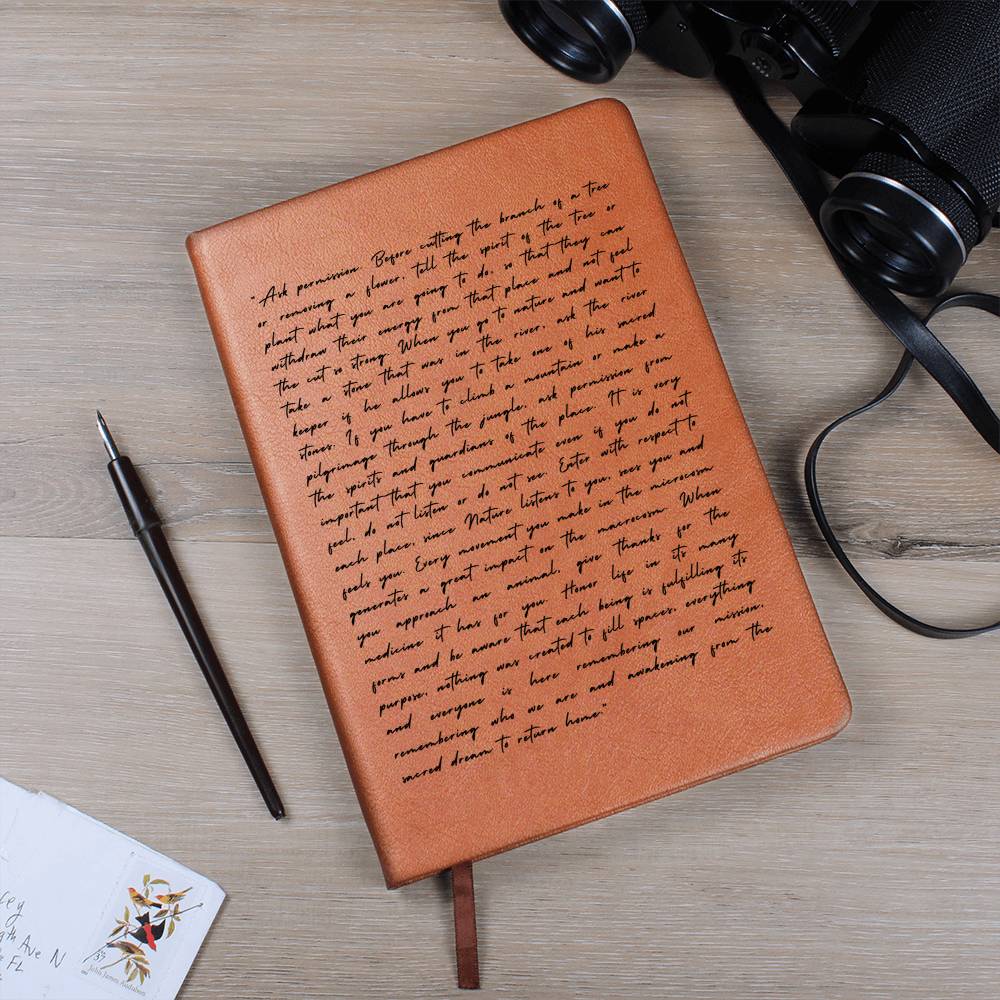 "Ask permission. Before cutting the branch of a tree
or removing a flower, tell the spirit of the tree or
plant what you are going to do, so that they can
withdraw their energy from that place and not feel
the cut so strong. When you go to nature and want to
take a stone that was in the river, ask the river
keeper if he allows you to take one of his sacred
stones. If you have to climb a mountain or make a
pilgrimage through the jungle, ask permission from
the spirits and guardians of the place. It is very
important that you communicate even if you do not
feel, do not listen or do not see. Enter with respect to
each place, since Nature listens to you, sees you and
feels you. Every movement you make in the microcosm
generates a great impact on the macrocosm. When
you approach an animal, give thanks for the
medicine it has for you. Honor life in its many
forms and be aware that each being is fulfilling its
purpose, nothing was created to fill spaces, everything
and everyone is here remembering our mission,
remembering who we are and awakening from the
sacred dream to return home."
Ave N
FL
37
John James Audubon